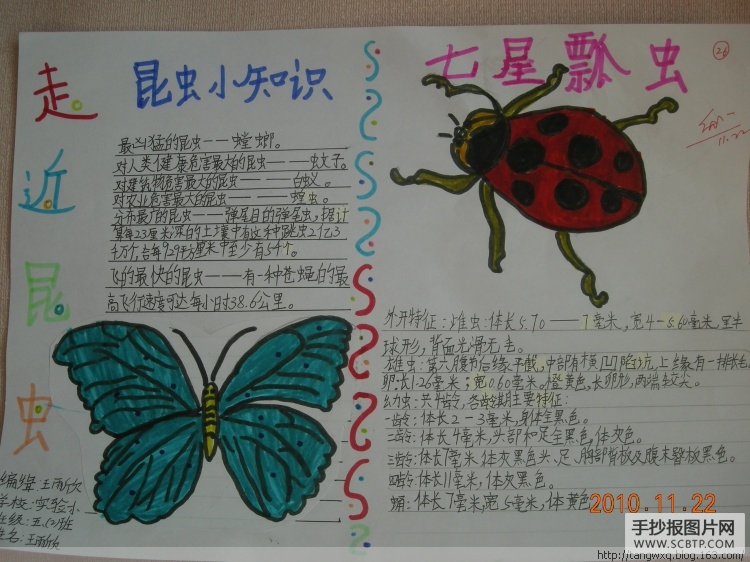 走近昆虫
昆虫小知识
最凶猛的昆虫——螳螂。
对人类健康危害最大的昆虫———蚊子。
对建筑物危害最大的昆虫———白蚁。
对农业危害最大的昆虫———蝗虫。
分布最广的昆虫———弹尾目的弹尾虫,据计
算每23厘米深的土壤中有这种跳虫2亿3
千万个,合每929平方厘米中至少有54个。
飞的最快的昆虫———有一种苍蝇的最
高飞行速度可达每小时38.6公里。
编缉:王雨欣
学校:实验小
班级:五.(2)班
姓名:王雨欣
七星瓢虫
26
11.22
外形特征:雄虫:体长5.70——7毫米,宽4—5.60毫米,呈半
球形,背面光滑无毛。
雄虫:第六腹节后缘平截,中部有横凹陷坑,上缘有一排长毛
卵:长1.26毫米;宽0.60毫米。橙黄色,长卵形,两端较尖。
幼虫:共4龄,各龄期主要特征:
一龄:体长2—3毫米,身体全黑色。
二龄:体长4毫米,头部和足全黑色,体灰色。
三龄:体长7毫米,体灰黑色,头、足、胸部背板及腹末臀板黑色。
四龄:体长11毫米,体灰黑色。
蛹:体长7毫米,宽5毫米,体黄色
2010.11.22
手抄报图片网
WWW.SCBTP.COM
http://tangwxq.blog.163.com/